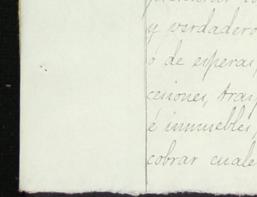 y verdadero
ó de esperas,
cesiones, tran
é inmuebles,
cobrar cuale